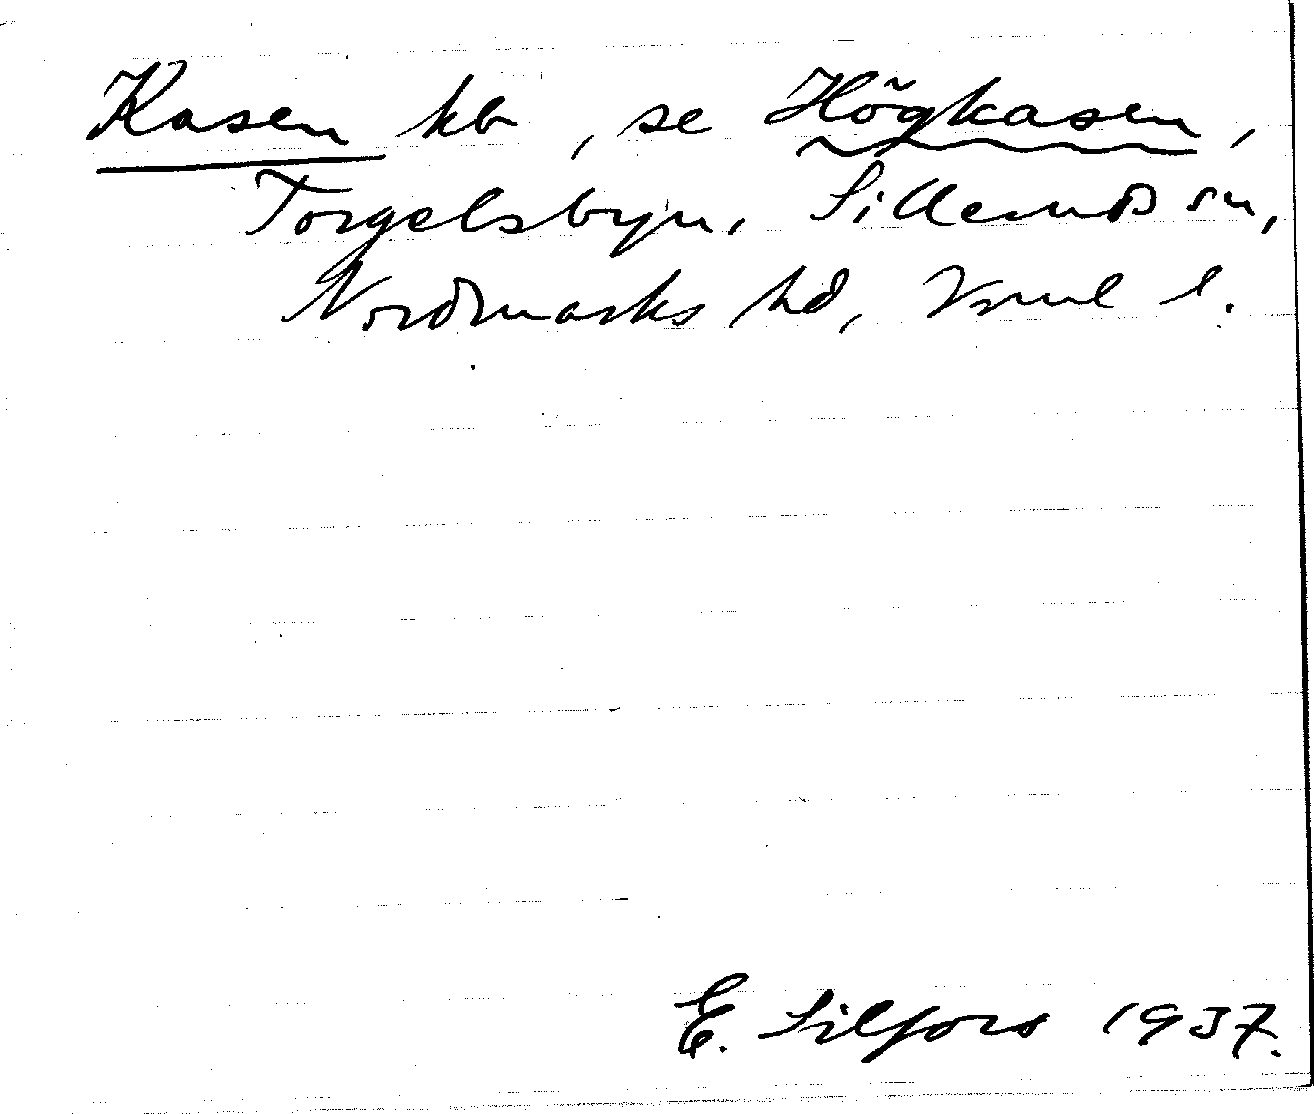 Kasen hb, se Högkasen,
Torgelsbyn, Silleruds sn,
Nordmarks hd, Vrml l.
E. Silfors 1937.